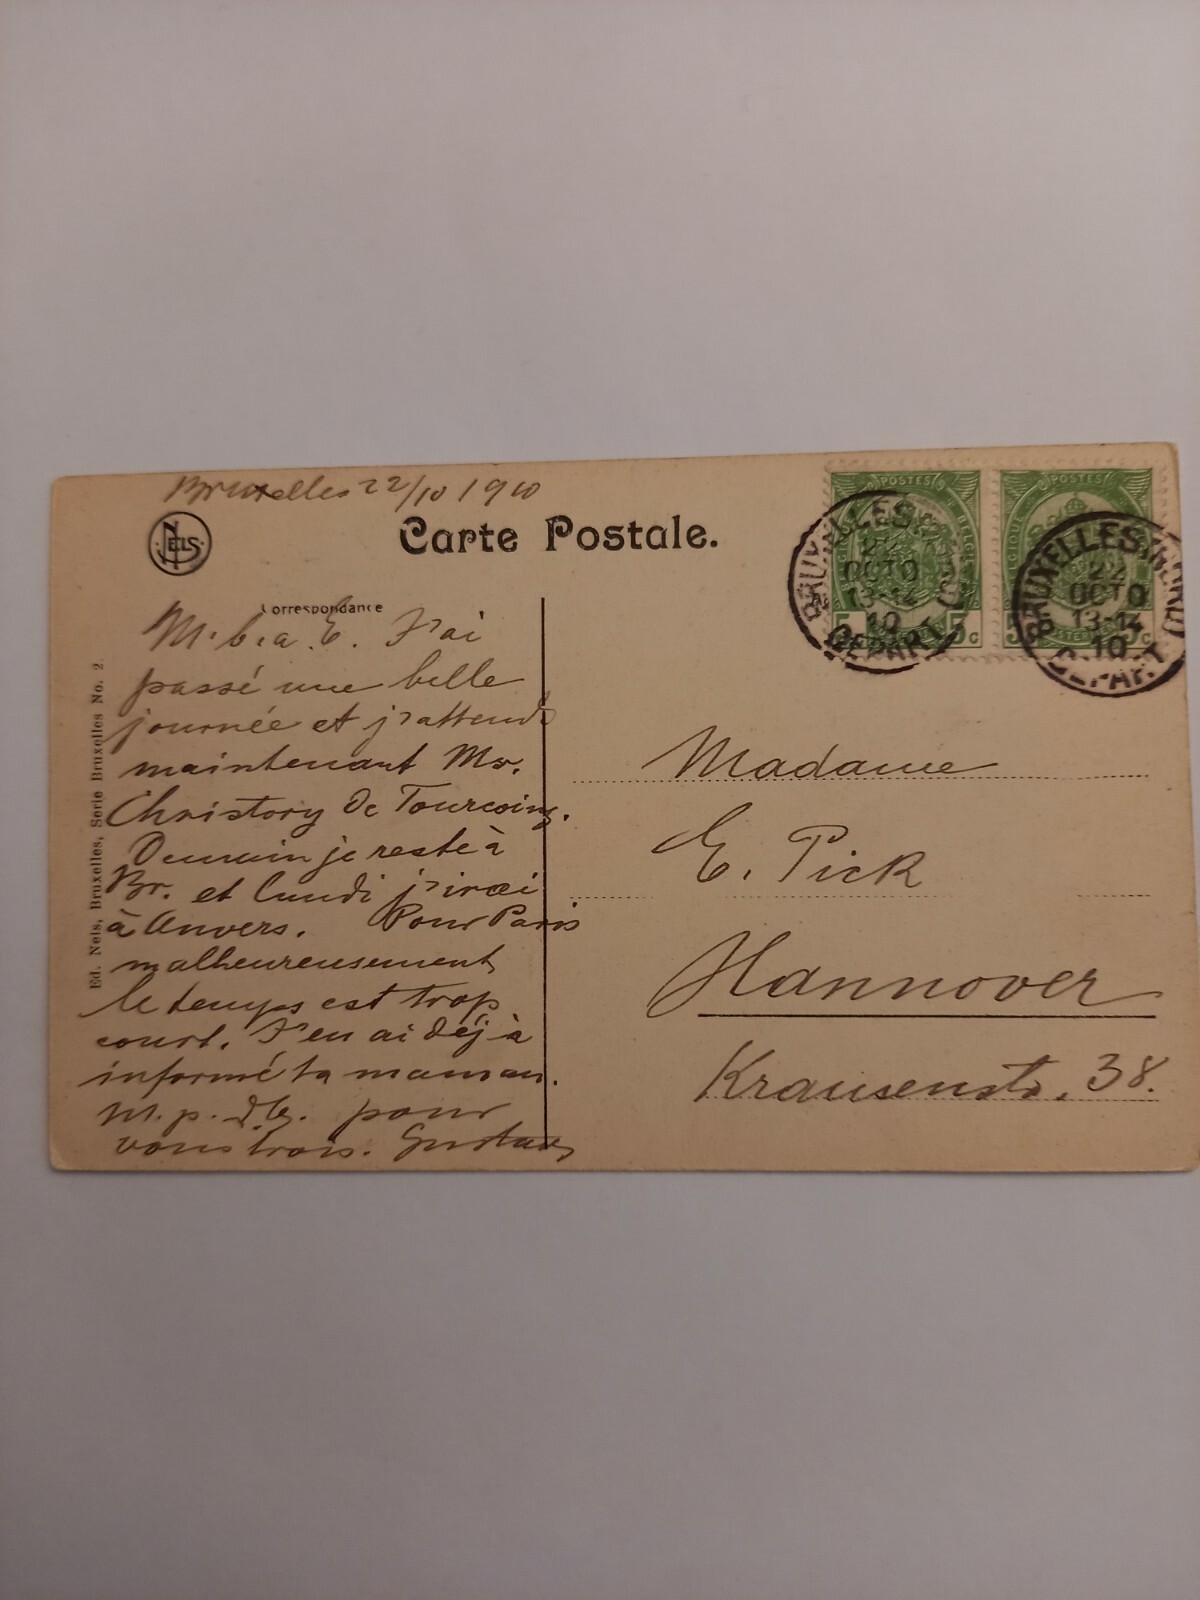 Bruxelles 22/10 1910
NELS
Carte Postale.
Correspondance
M. b. a. E. J'ai
passé une belle
journée et j'attends
maintenant Mr.
Christory De Tourcoing.
Demain je reste à
Br. et lundi j'irai
à Anvers. Pour Paris
malheureusement
le temps est trop
court. J'en ai déjà
informé ta maman.
M. p. pour
vous trois. Gustav
Ed. Nels, Bruxelles, Serie Bruxelles No. 2.
POSTES
BELGIQUE
5 C
BRUXELLES (NORD)
22
OCTO
13-14
10
DEPART
POSTES
BELGIQUE
5 C
BRUXELLES (NORD)
22
OCTO
13-14
10
DEPART
Madame
E. Pick
Hannover
Krausenstr. 38.